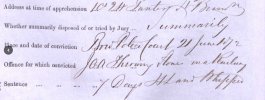 Address at time of apprehension 10
Whether summarily disposed of or tried by Jury Summarily
Place and date of conviction Bow Police Court, 21 June 1872
Offence for which convicted Throwing Stone on a Railway
Sentence 7 Days H L and Whipped